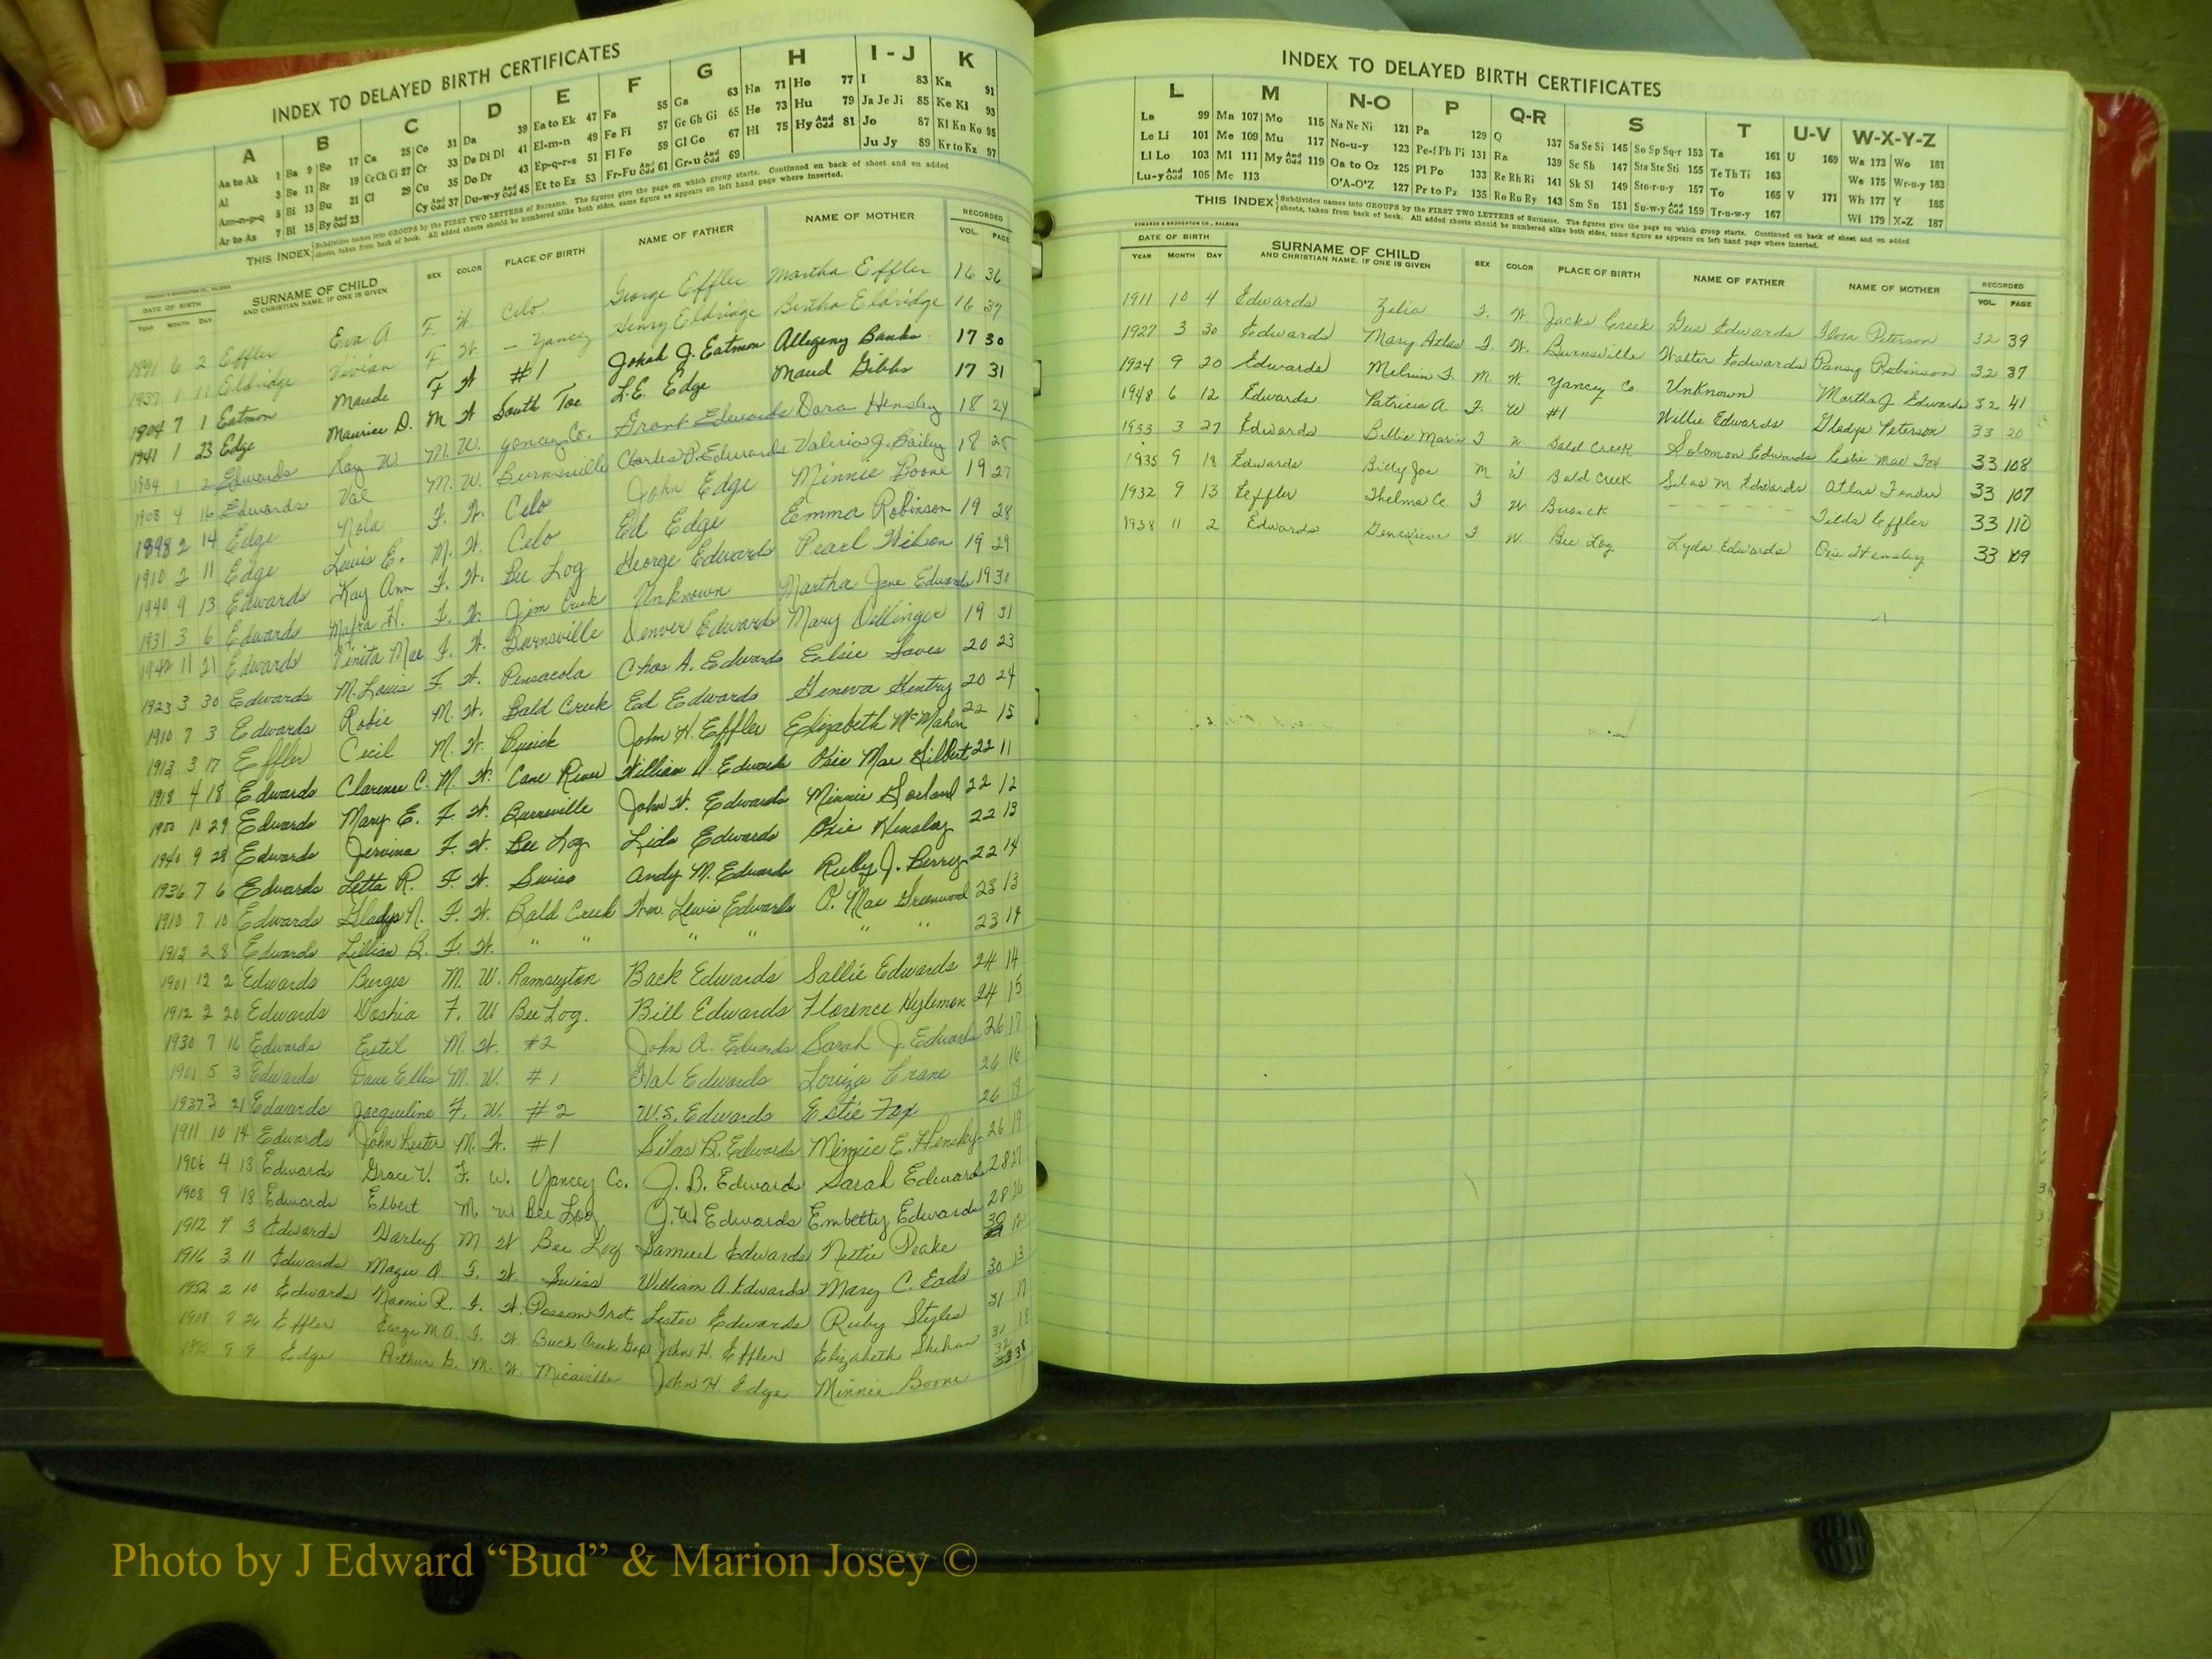 INDEX TO DELAYED BIRTH CERTIFICATES
A B C D E F G H I - J K
Aa to Ak 1 Ba 9 Bo 17 Ca 25 Co 31 Da 39 Ea to Ek 47 Fa 55 Ga 63 Ha 71 Ho 77 I 83 Ka 91
Al 3 Be 11 Br 19 Ce Ch Ci 27 Cr 33 De Di Dl 41 El-m-n 49 Fe Fi 57 Ge Gh Gi 65 He 73 Hu 79 Ja Je Ji 85 Ke Ki 93
Am-n-p-q 5 Bi 13 Bu 21 Cl 29 Cu 35 Do Dr 43 Ep-q-r-s 51 Fl Fo 59 Gl Go 67 Hi 75 Hy And Odd 81 Jo 87 Kl Kn Ko 95
Ar to Az 7 Bl 15 By And Odd 23 Cy And Odd 37 Du-w-y And Odd 45 Et to Ez 53 Fr-Fu And Odd 61 Gr-u And Odd 69 Ju Jy 89 Kr to Kz 97
THIS INDEX Subdivides names into GROUPS by the FIRST TWO LETTERS of Surname. The figures give the page on which group starts. Continued on back of sheet and on added
sheets, taken from back of book. All added sheets should be numbered alike both sides, same figure as appears on left hand page where inserted.
DATE OF BIRTH SURNAME OF CHILD SEX COLOR PLACE OF BIRTH NAME OF FATHER NAME OF MOTHER RECORDED
YEAR MONTH DAY AND CHRISTIAN NAME, IF ONE IS GIVEN VOL. PAGE
1891 6 2 Effler Eva A F. W. Celo George Effler Martha Effler 16 36
1937 1 11 Eldridge Vivian F W. Yancey Henry Eldridge Bertha Eldridge 16 37
1904 7 1 Eatmon Maude F W #1 J. Eatmon Allegeny Banks 17 30
1941 1 23 Edge Maurice D. M W South Toe L.E. Edge Maud Gibbs 17 31
1904 1 2 Edwards Ray W. M. W. Yancey Co. Grant Edwards Dora Hensley 18 24
1908 4 16 Edwards Val M. W. Burnsville Charles P. Edwards Valeria J. Bailey 18 25
1898 2 14 Edge Nola F. W. Celo John Edge Minnie Boone 19 27
1910 2 11 Edge Lewis E. M. W. Celo Ed Edge Emma Robinson 19 28
1940 9 13 Edwards Kay Ann F. W. Bee Log George Edwards Pearl Wilson 19 29
1931 3 6 Edwards Mafra H. F. W. Jim Creek Unknown Martha Jane Edwards 19 30
1942 11 21 Edwards Vinita Mae F. W. Burnsville Denver Edwards Mary Dellinger 19 31
1923 3 30 Edwards M. Louis F. W. Pensacola Chas A. Edwards Elsie 20 23
1910 7 3 Edwards Robie M. W. Bald Creek Ed Edwards Geneva Gentry 20 24
1913 3 17 Effler Cecil M. W. Busick John H. Effler Elizabeth McMahan 22 15
1918 4 18 Edwards Clarence C. M. W. Cane River William D. Edwards Oxie Mae Silbert 22 11
1900 10 29 Edwards Mary E. F. W. Burnsville John W. Edwards Minnie 22 12
1940 9 28 Edwards Jervina F. W. Bee Log Lida Edwards Oxie Hensley 22 13
1936 7 6 Edwards Letta R. F. W. Swiss Andy M. Edwards Ruby J. Berry 22 14
1910 7 10 Edwards Gladys N. F. W. Bald Creek Wm. Lewis Edwards O. Mae Greenwood 23 13
1913 2 8 Edwards Lillian B. F. W. " " " " " " 23 14
1901 12 2 Edwards Burges M. W. Ramseyton Back Edwards Sallie Edwards 24 14
1912 2 20 Edwards Doshia F. W Bee Log. Bill Edwards Florence Hylemon 24 15
1930 7 16 Edwards Estil M. W. #2 John A. Edwards Sarah J. Edwards 26 17
1901 5 3 Edwards Dave Ellis M. W. #1 Hal Edwards Louiza Crane 26 16
1937 3 21 Edwards Jacqueline F. W. #2 W.S. Edwards Estie Fox 26 18
1911 10 14 Edwards John Lester M. W. #1 Silas B. Edwards Minnie E. Hensley 26 19
1906 4 13 Edwards Grace V. F. W. Yancey Co. J. B. Edwards Sarah Edwards 28 27
1908 9 18 Edwards Elbert M. W Bee Log J. W Edwards Embetty Edwards 28 26
1912 7 3 Edwards Harley M W Bee Log Samuel Edwards Nettie Peake 30 12
1916 3 11 Edwards Magie A. F. W. Swiss William A Edwards Mary C. Eads 30 13
1952 2 10 Edwards Naomi R. F. W. Possom Trot Lester Edwards Ruby Styles 31 17
26 Effler M.A. F. W. Buck Creek Gap John H. Effler Elizabeth Shehan 31 18
9 9 Edge Arthur G. M. W. Micaville John H. Edge Minnie Boone 32 38
INDEX TO DELAYED BIRTH CERTIFICATES
L M N-O P Q-R S T U-V W-X-Y-Z
La 99 Ma 107 Mo 115 Na Ne Ni 121 Pa 129 Q 137 Sa Se Si 145 So Sp Sq-r 153 Ta 161 U 169 Wa 173 Wo 181
Le Li 101 Me 109 Mu 117 No-u-y 123 Pe-f Ph Pi 131 Ra 139 Sc Sh 147 Sta Ste Sti 155 Te Th Ti 163 We 175 Wr-u-y 183
Ll Lo 103 Mi 111 My And Odd 119 Oa to Oz 125 Pl Po 133 Re Rh Ri 141 Sk Sl 149 Sto-r-u-y 157 To 165 V 171 Wh 177 Y 185
Lu-y And Odd 105 Mc 113 O'A-O'Z 127 Pr to Pz 135 Ro Ru Ry 143 Sm Sn 151 Su-w-y And Odd 159 Tr-u-w-y 167 Wi 179 X-Z 187
THIS INDEX Subdivides names into GROUPS by the FIRST TWO LETTERS of Surname. The figures give the page on which group starts. Continued on back of sheet and on added
sheets, taken from back of book. All added sheets should be numbered alike both sides, same figure as appears on left hand page where inserted.
EDWARDS & BROUGHTON CO., RALEIGH
DATE OF BIRTH SURNAME OF CHILD SEX COLOR PLACE OF BIRTH NAME OF FATHER NAME OF MOTHER RECORDED
YEAR MONTH DAY AND CHRISTIAN NAME, IF ONE IS GIVEN VOL. PAGE
1911 10 4 Edwards Zelia F. W. Jacks Creek Gus Edwards Peterson 32 39
1927 3 30 Edwards Mary Atlas F. W. Burnsville Walter Edwards Pansy Robinson 32 37
1924 9 20 Edwards Melvin F. M. W. Yancey Co. Unknown Martha J. Edwards 32 41
1948 6 12 Edwards Patricia A. F. W #1 Willie Edwards Gladys Peterson 33 20
1933 3 27 Edwards Billie Marie F W. Bald Creek Solomon Edwards Estie Mae Fox 33 108
1935 9 18 Edwards Billy Joe M W Bald Creek Silas M Edwards Atlas Fender 33 107
1932 9 13 Effler Thelma Ce F W Busick - - - - - - Tilda Effler 33 110
1938 11 2 Edwards Genevieve F W. Bee Log Lyda Edwards Oxie Hensley 33 109
Photo by J Edward “Bud” & Marion Josey ©